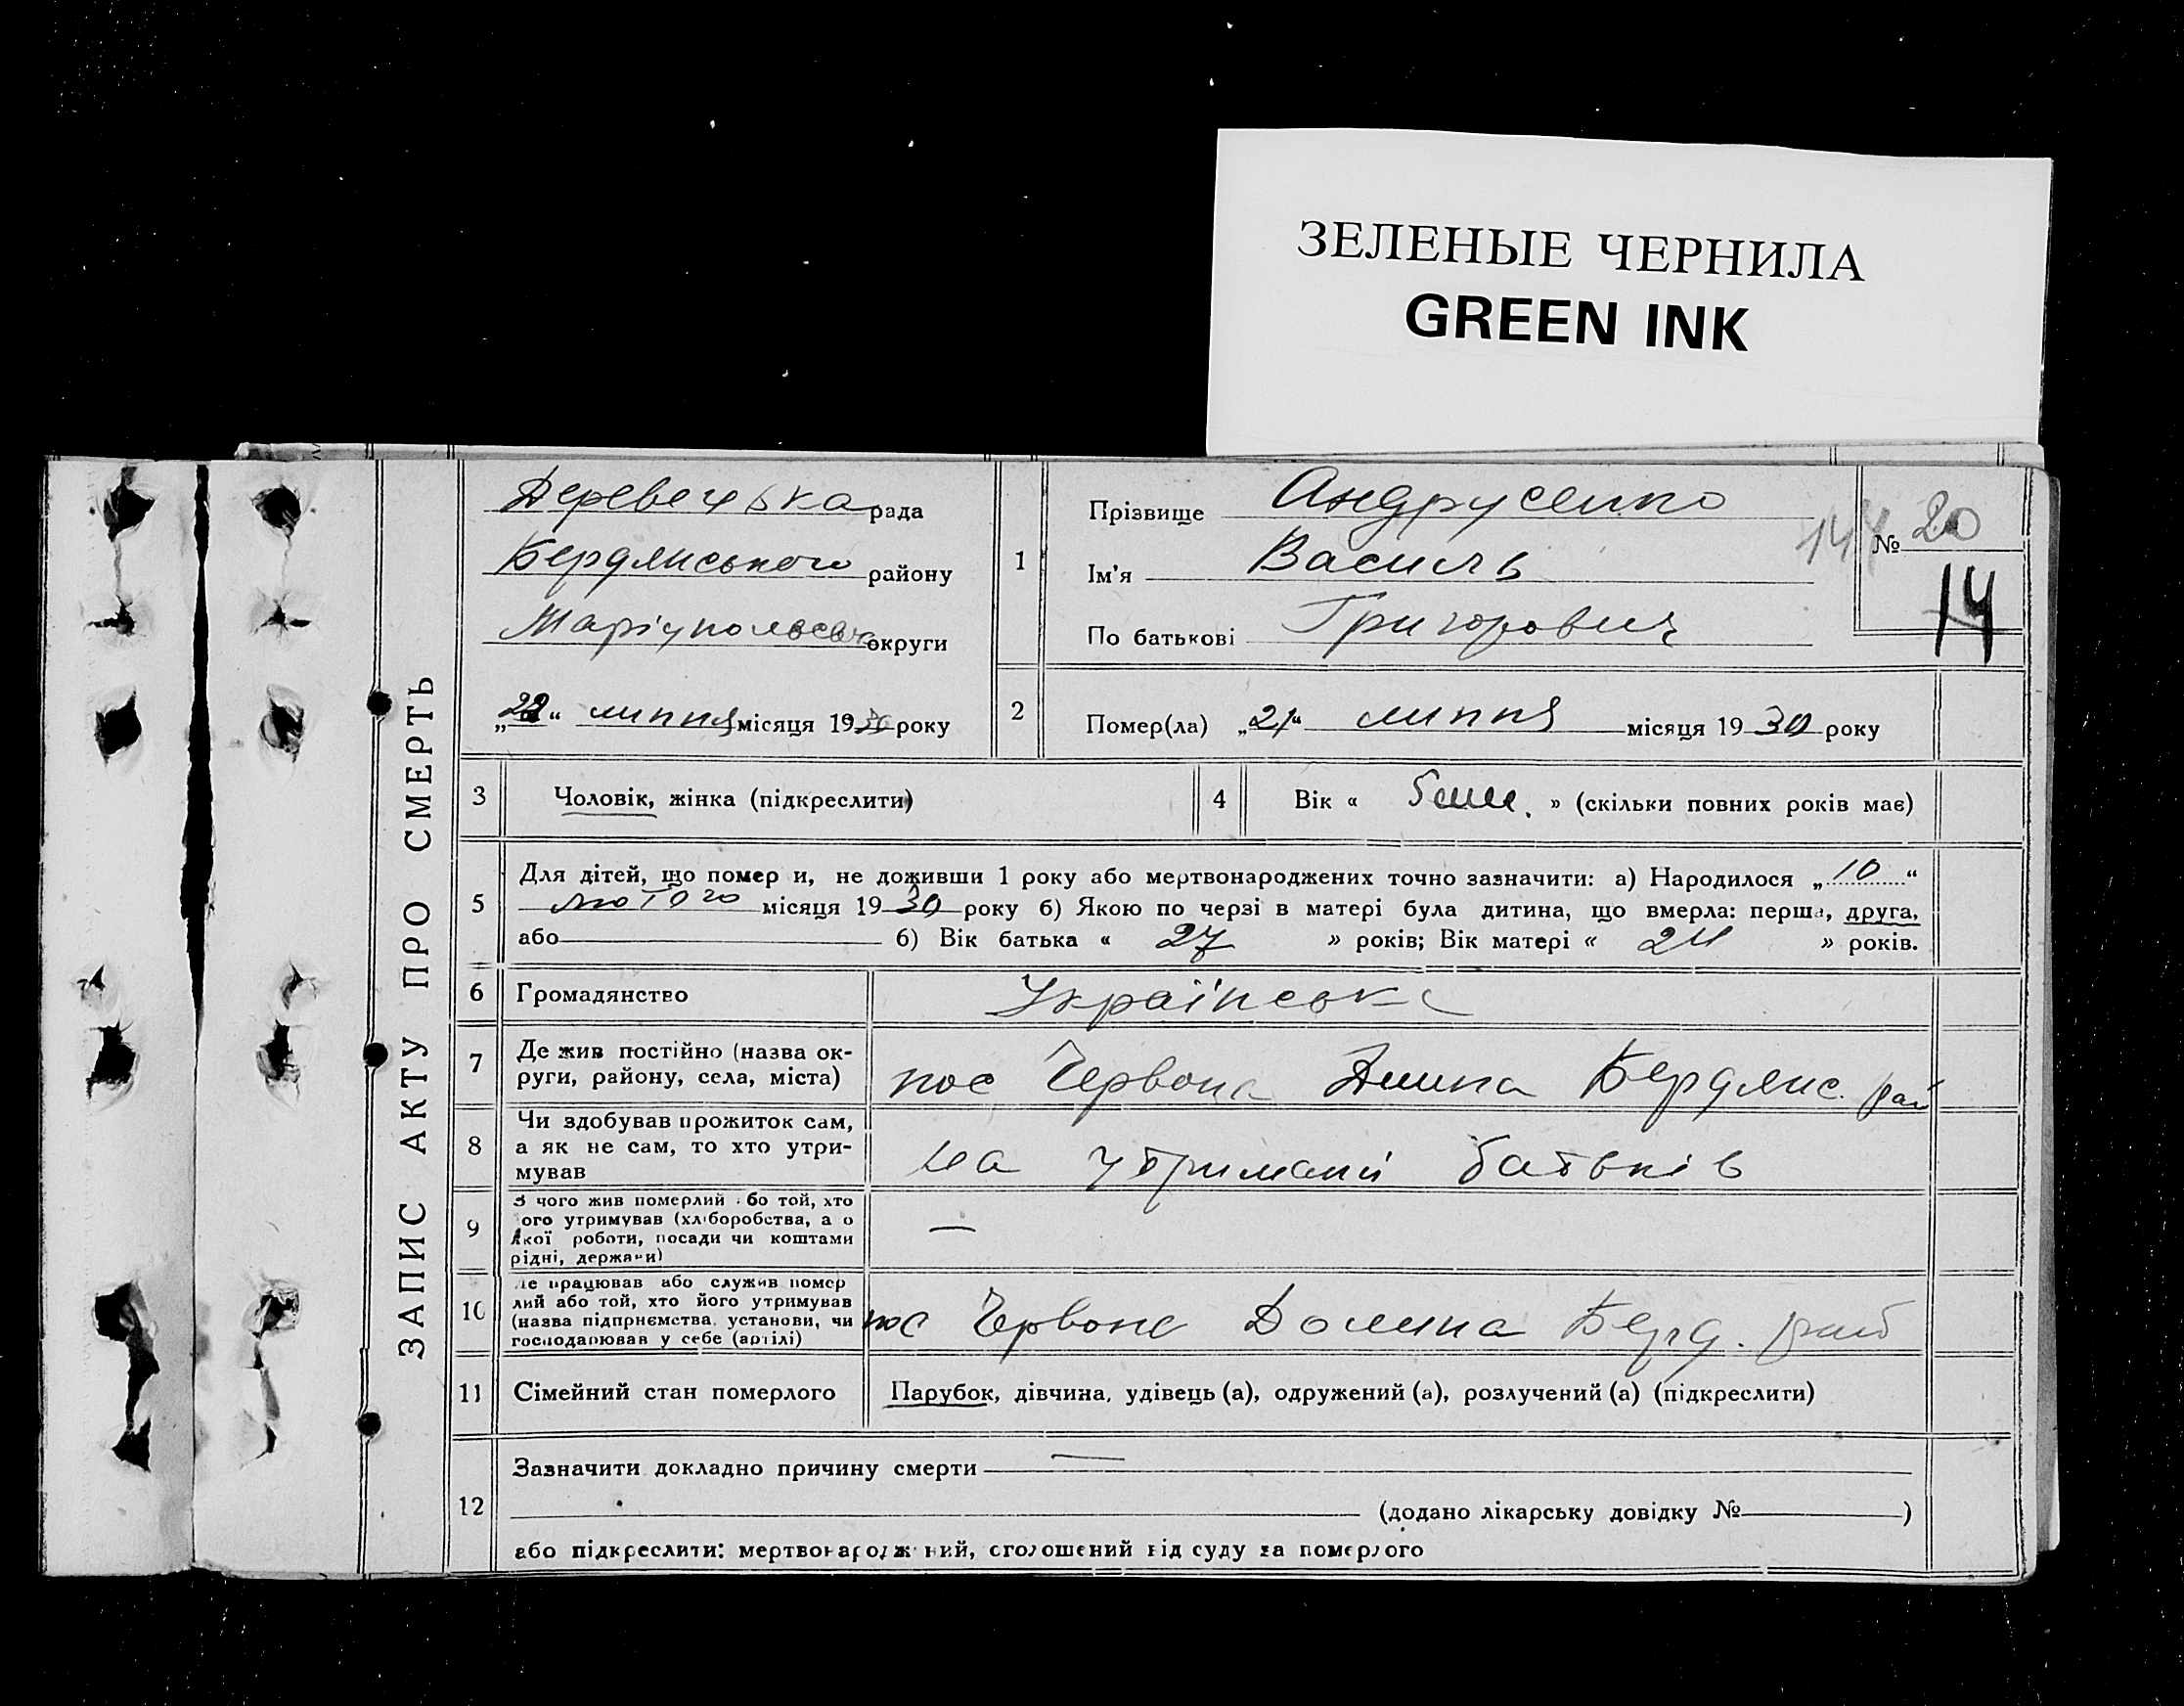 ЗЕЛЕНЫЕ ЧЕРНИЛА
GREEN INK
ЗАПИС АКТУ ПРО СМЕРТЬ
рада
Бердянського району
округи
„22“ липня місяця 1930 року
1
Прізвище Андрусенко
Ім'я Василь
По батькові Григорович
144
№ 20
14
2
Помер(ла) „21“ липня місяця 1930 року
3
Чоловік, жінка (підкреслити)
4
Вік « 5 » (скільки повних років має)
5
Для дітей, що помер и, не доживши 1 року або мертвонароджених точно зазначити: а) Народилося „10“
лютого місяця 1930 року б) Якою по черзі в матері була дитина, що вмерла: перша, друга,
або б) Вік батька « 27 » років; Вік матері « 24 » років.
6
Громадянство
Українське
7
Де жив постійно (назва ок-
руги, району, села, міста)
пос Червона Бердянс. рай
8
Чи здобував прожиток сам,
а як не сам, то хто утри-
мував
на утримані батьків
9
З чого жив померлий або той, хто
ого утримував (хліборобства, а о
якої роботи, посади чи коштами
рідні, держави)
—
10
Де працював або служив помер
лий або той, хто його утримував
(назва підприємства, установи, чи
господарював у себе (артілі)
пос Червона Долина Берд. рай
11
Сімейний стан померлого
Парубок, дівчина, удівець (а), одружений (а), розлучений (а) (підкреслити)
12
Зазначити докладно причину смерти —
(додано лікарську довідку № )
або підкреслити: мертвонароджений, оголошений від суду за померлого